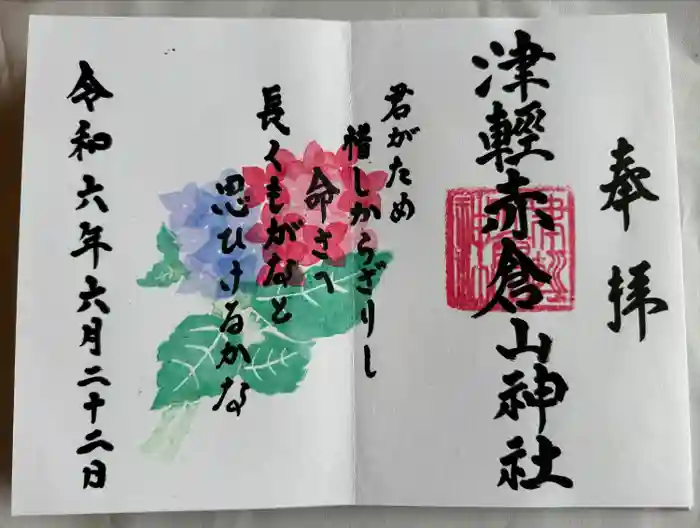 奉拝
津輕赤倉山神社
君がため
惜しからざりし
命さへ
長くもがなと
思ひけるかな
令和六年六月二十二日